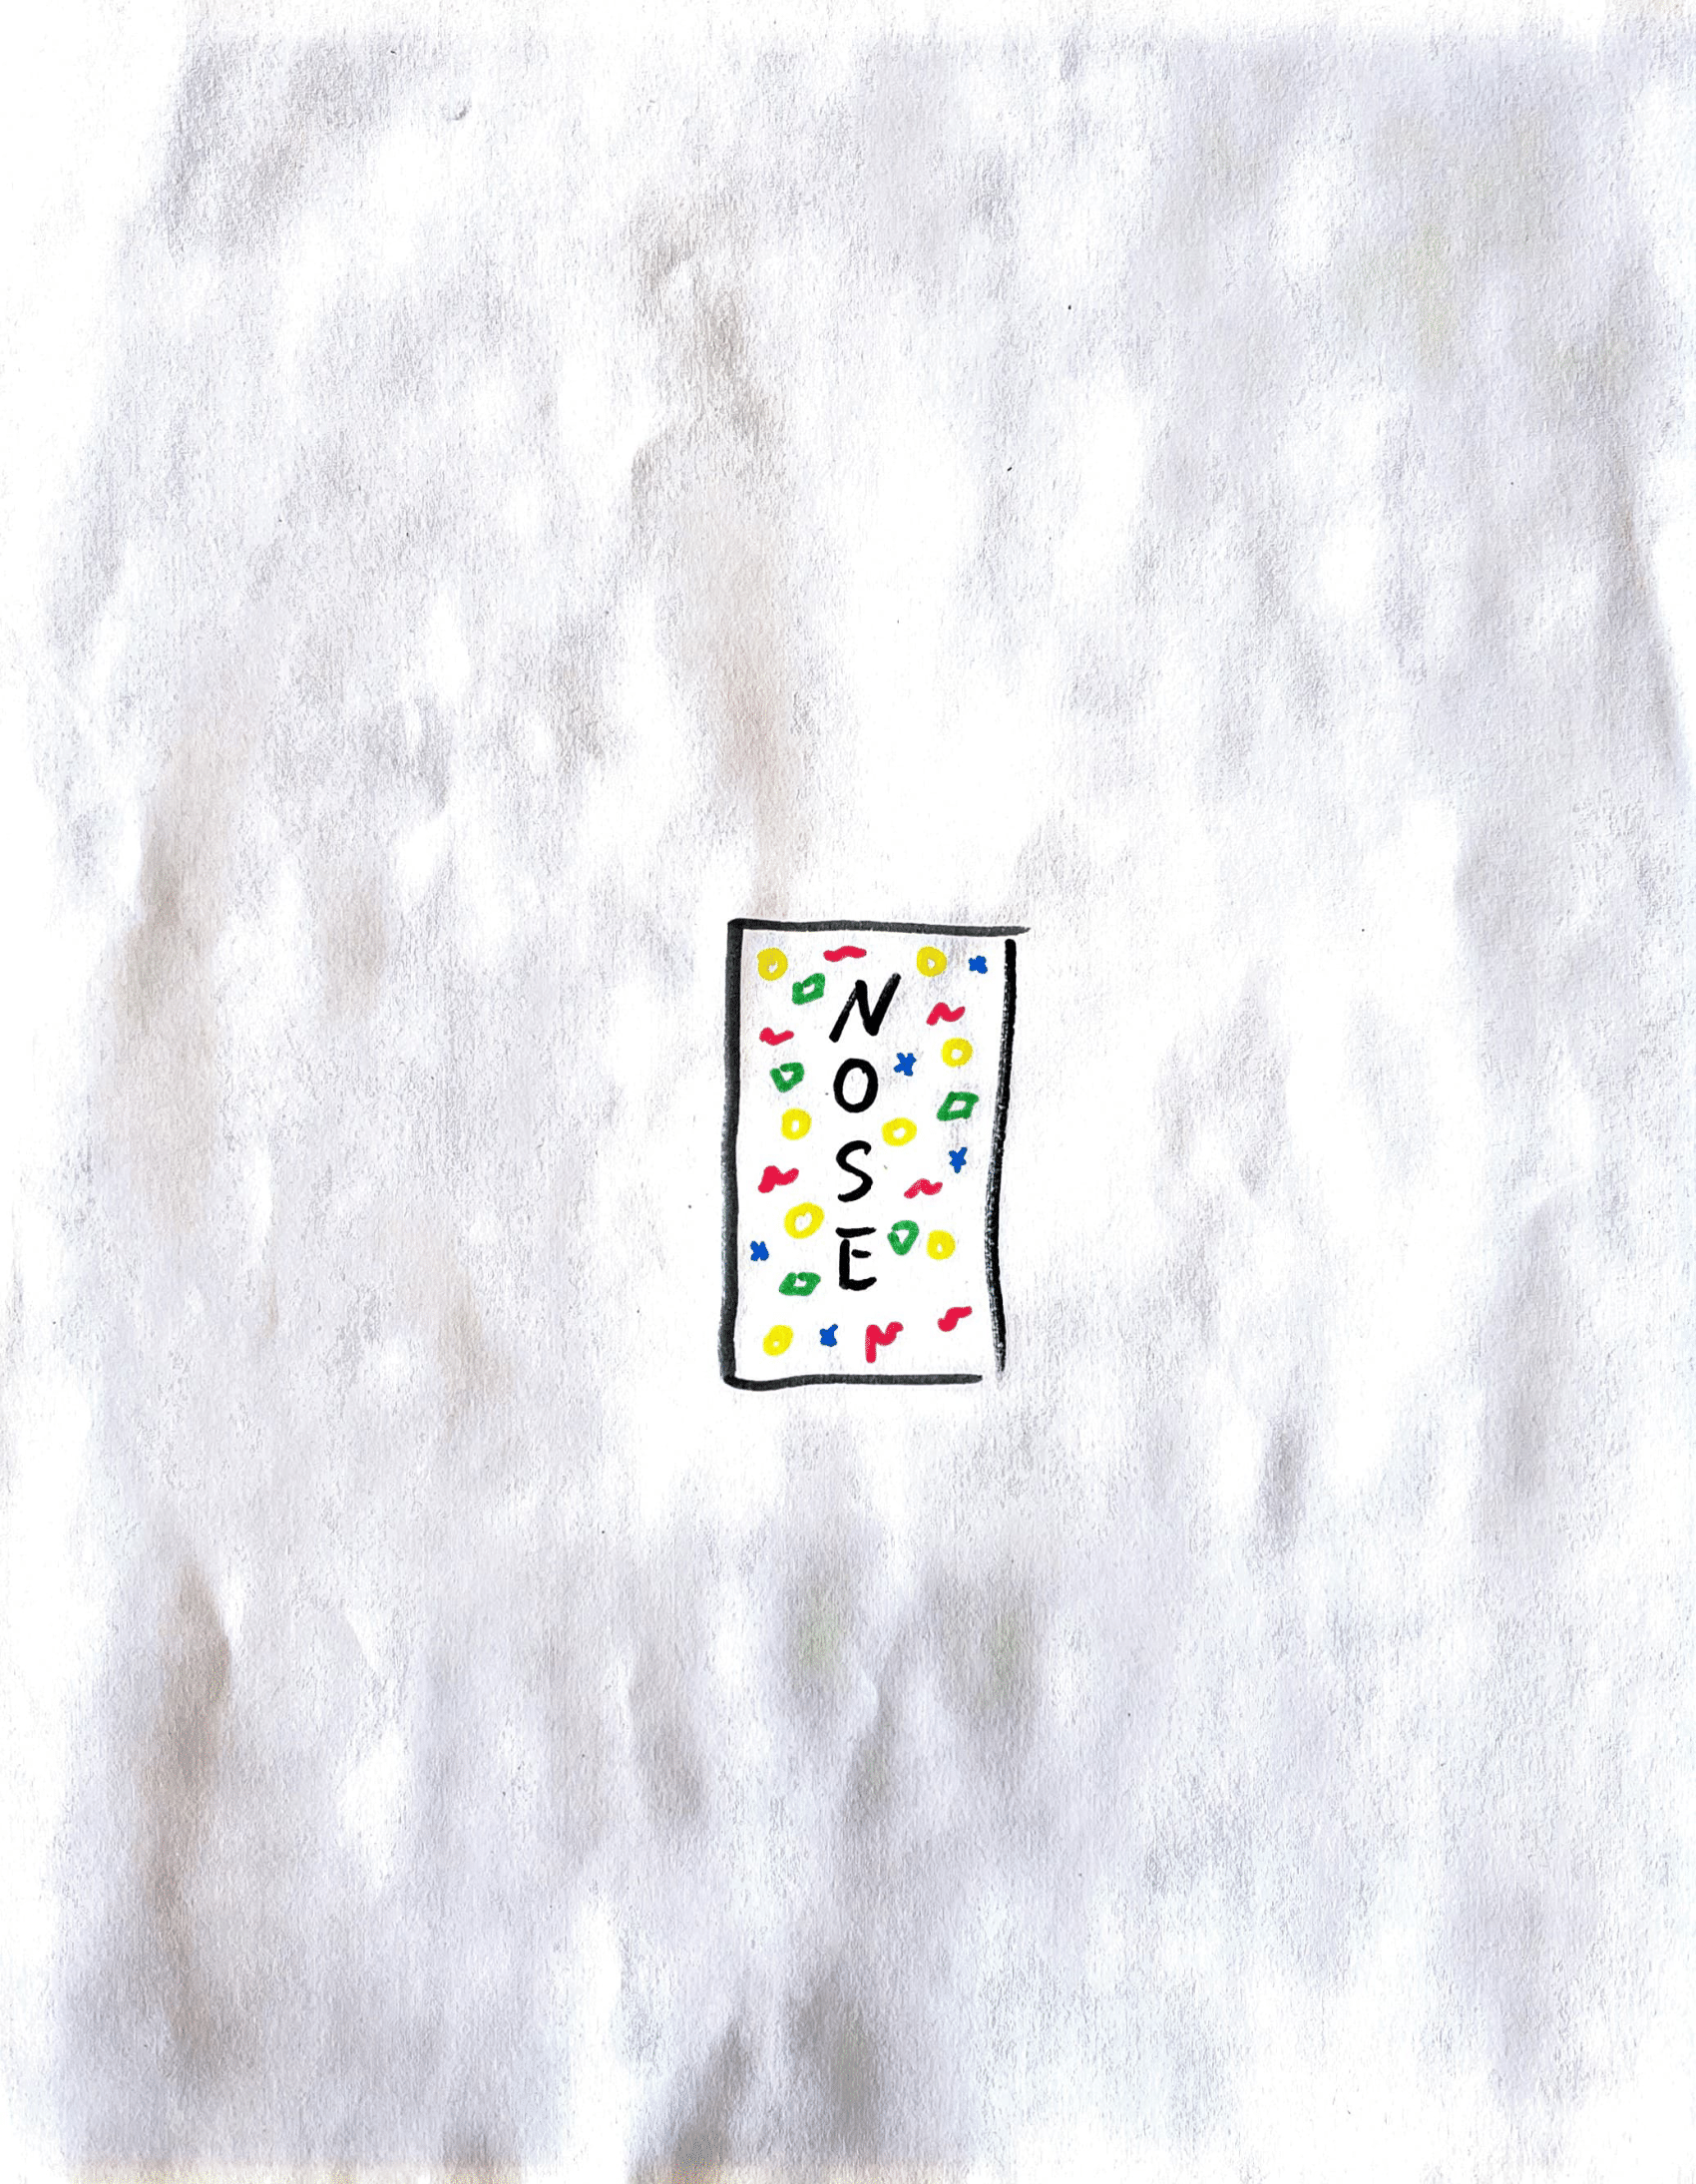 N
O
S
E